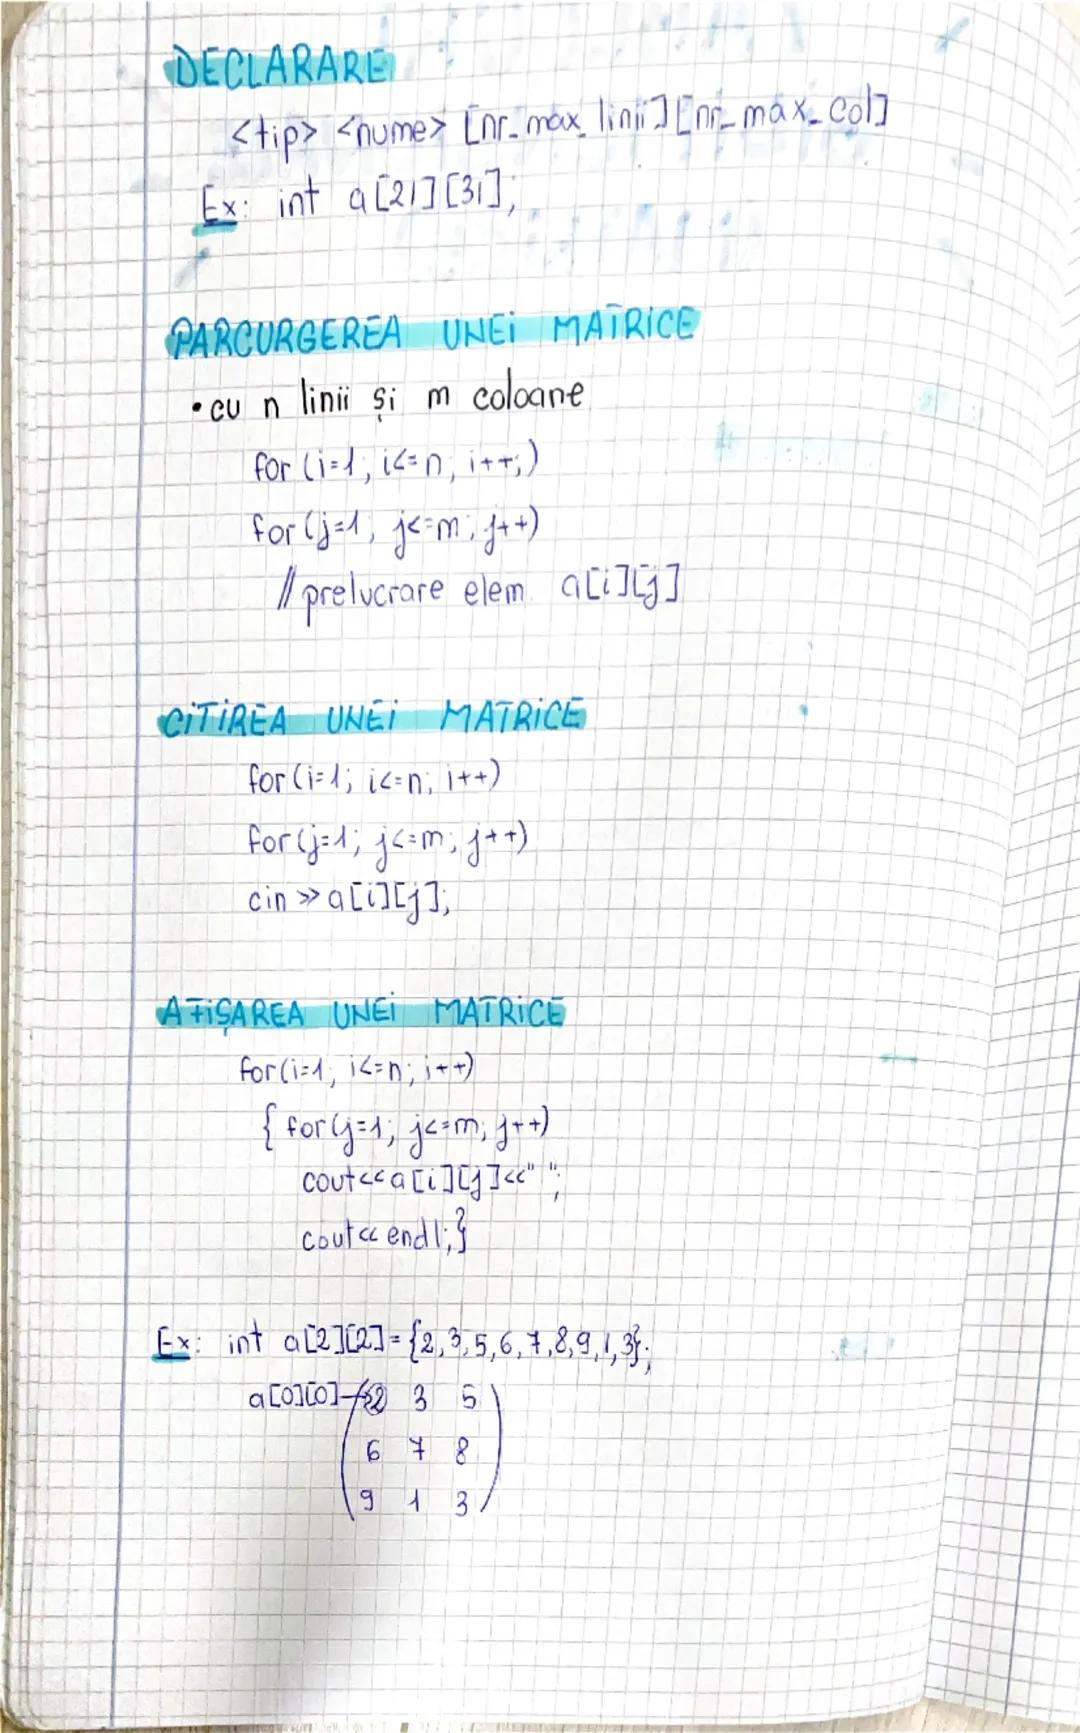 DECLARARE
<tip> <nume> [nr_max_linii][nr_max_col]
Ex: int a[21][31];
PARCURGEREA UNEI MATRICE
• cu n linii și m coloane
for (i=1; i<=n; i++;)
for (j=1; j<=m; j++)
// prelucrare elem. a[i][j]
CITIREA UNEI MATRICE
for (i=1; i<=n; i++)
for (j=1; j<=m; j++)
cin >> a[i][j];
AFIȘAREA UNEI MATRICE
for(i=1; i<=n; i++)
{ for(j=1; j<=m; j++)
cout<<a[i][j]<<" ";
cout<<endl;}
Ex: int a[2][2]={2,3,5,6,7,8,9,1,3};
a[0][0] 2 3 5
6 7 8
9 1 3